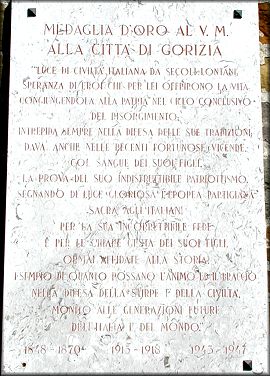 MEDAGLIA D'ORO AL V. M.
ALLA CITTÀ DI GORIZIA
"LUCE DI CIVILTÀ ITALIANA DA SECOLI LONTANI,
SPERANZA DI EROI CHE PER LEI OFFRIRONO LA VITA
CONGIUNGENDOLA ALLA PATRIA NEL CICLO CONCLUSIVO
DEL RISORGIMENTO;
INTREPIDA SEMPRE NELLA DIFESA DELLE SUE TRADIZIONI,
DAVA ANCHE NELLE RECENTI FORTUNOSE VICENDE,
COL SANGUE DEI SUOI FIGLI,
LA PROVA DEL SUO INDISTRUTTIBILE PATRIOTTISMO,
SEGNANDO DI LUCE GLORIOSA L'EPOPEA PARTIGIANA
SACRA AGLI ITALIANI
PER LA SUA INCORRUTTIBILE FEDE
E PER LE CHIARE GESTA DEI SUOI FIGLI,
ORMAI AFFIDATE ALLA STORIA
ESEMPIO DI QUANTO POSSANO L'ANIMO ED IL BRACCIO
NELLA DIFESA DELLA STIRPE E DELLA CIVILTÀ,
MONITO ALLE GENERAZIONI FUTURE
DELL'ITALIA E DEL MONDO."
1848-1870 1915-1918 1943-1947